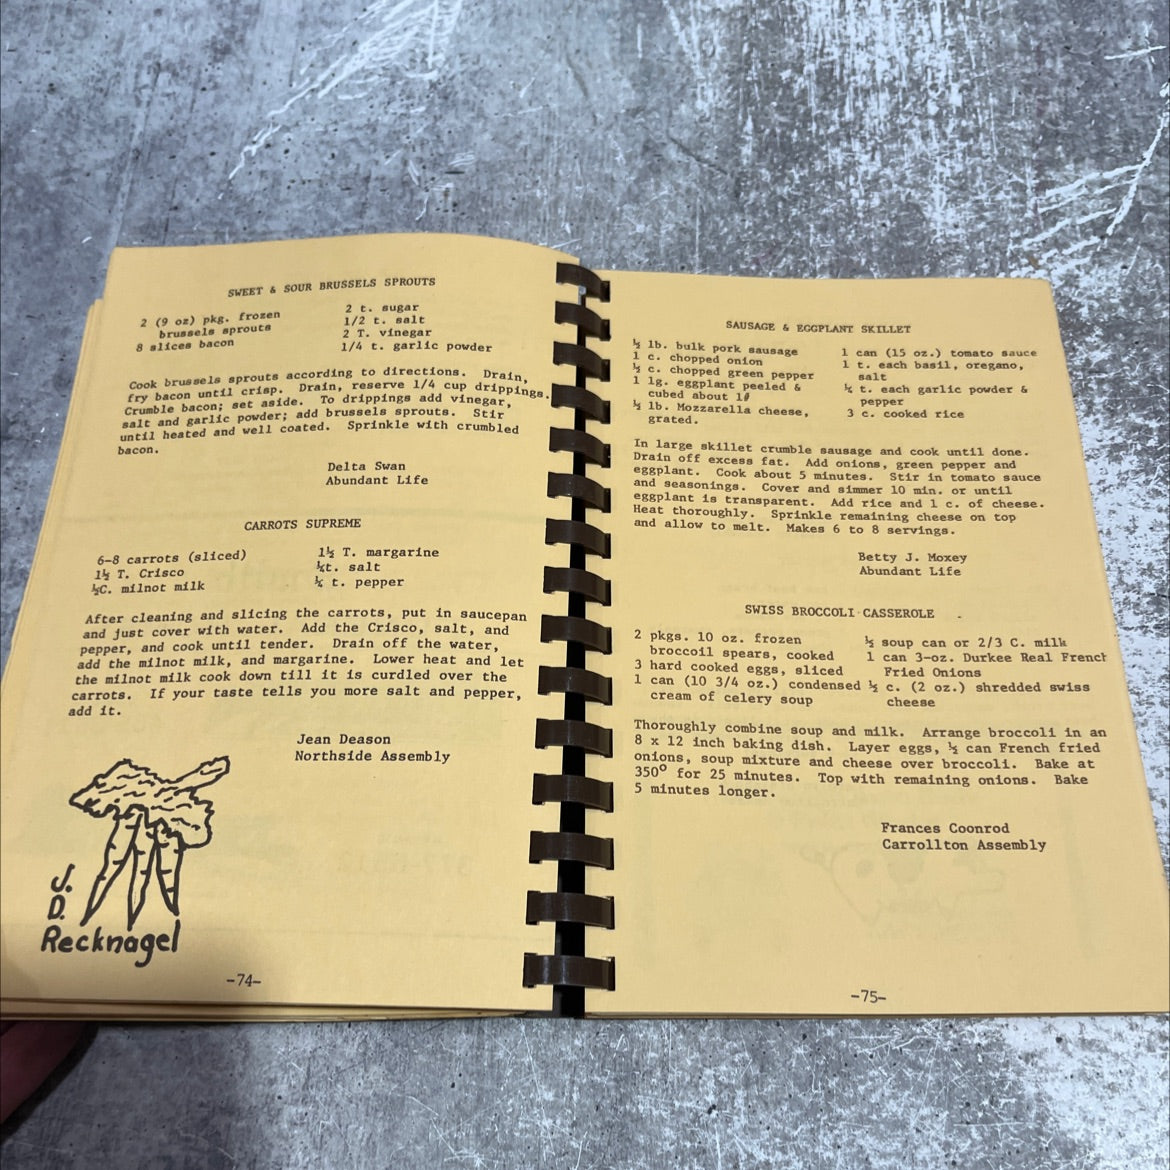 SWEET & SOUR BRUSSELS SPROUTS
2 (9 oz) pkg. frozen
brussels sprouts
8 slices bacon
2 t. sugar
1/2 t. salt
2 T. vinegar
1/4 t. garlic powder
Cook brussels sprouts according to directions. Drain,
fry bacon until crisp. Drain, reserve 1/4 cup drippings.
Crumble bacon; set aside. To drippings add vinegar,
salt and garlic powder; add brussels sprouts. Stir
until heated and well coated. Sprinkle with crumbled
bacon.
Delta Swan
Abundant Life
CARROTS SUPREME
6-8 carrots (sliced)
1½ T. Crisco
½C. milnot milk
1½ T. margarine
¼t. salt
¼ t. pepper
After cleaning and slicing the carrots, put in saucepan
and just cover with water. Add the Crisco, salt, and
pepper, and cook until tender. Drain off the water,
add the milnot milk, and margarine. Lower heat and let
the milnot milk cook down till it is curdled over the
carrots. If your taste tells you more salt and pepper,
add it.
Jean Deason
Northside Assembly
J.
D.
Recknagel
-74-
SAUSAGE & EGGPLANT SKILLET
½ lb. bulk pork sausage
1 c. chopped onion
½ c. chopped green pepper
1 lg. eggplant peeled &
cubed about 1"
½ lb. Mozzarella cheese,
grated.
1 can (15 oz.) tomato sauce
1 t. each basil, oregano,
salt
¼ t. each garlic powder &
pepper
3 c. cooked rice
In large skillet crumble sausage and cook until done.
Drain off excess fat. Add onions, green pepper and
eggplant. Cook about 5 minutes. Stir in tomato sauce
and seasonings. Cover and simmer 10 min. or until
eggplant is transparent. Add rice and 1 c. of cheese.
Heat thoroughly. Sprinkle remaining cheese on top
and allow to melt. Makes 6 to 8 servings.
Betty J. Moxey
Abundant Life
SWISS BROCCOLI CASSEROLE
2 pkgs. 10 oz. frozen
broccoil spears, cooked
3 hard cooked eggs, sliced
1 can (10 3/4 oz.) condensed
cream of celery soup
½ soup can or 2/3 C. milk
1 can 3-oz. Durkee Real French
Fried Onions
½ c. (2 oz.) shredded swiss
cheese
Thoroughly combine soup and milk. Arrange broccoli in an
8 x 12 inch baking dish. Layer eggs, ½ can French fried
onions, soup mixture and cheese over broccoli. Bake at
350° for 25 minutes. Top with remaining onions. Bake
5 minutes longer.
Frances Coonrod
Carrollton Assembly
-75-